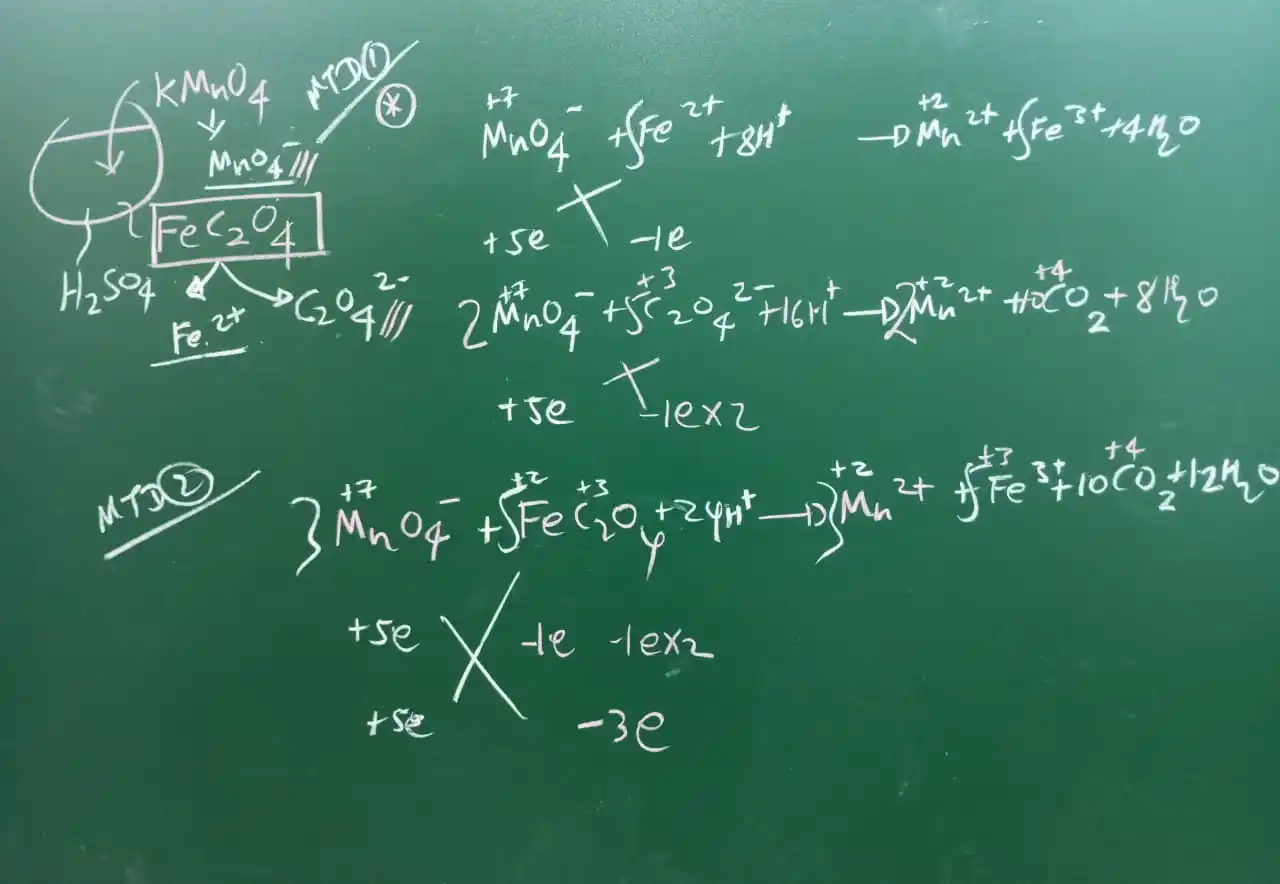 KMnO4
MTD ①
*
MnO4⁻
FeC2O4
H2SO4
Fe²⁺
C2O4²⁻
+7 +2
MnO4⁻ + 5Fe²⁺ + 8H⁺ → Mn²⁺ + 5Fe³⁺ + 4H2O
+5e -1e
+7 +3 +2 +4
2MnO4⁻ + 5C2O4²⁻ + 16H⁺ → 2Mn²⁺ + 10CO2 + 8H2O
+5e -1e×2
MTD ②
+7 +2 +3 +2 +3 +4
3MnO4⁻ + 5FeC2O4 + 24H⁺ → 3Mn²⁺ + 5Fe³⁺ + 10CO2 + 12H2O
+5e -1e -1e×2
+5e -3e